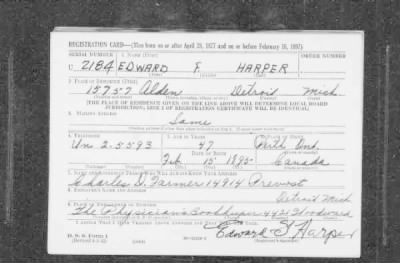 REGISTRATION CARD—(Men born on or after April 28, 1877 and on or before February 16, 1897)
SERIAL NUMBER 1. NAME (Print) ORDER NUMBER
U 2184 EDWARD F. HARPER
(First) (Middle) (Last)
2. PLACE OF RESIDENCE (Print)
15757 Alden Detroit Mich
[THE PLACE OF RESIDENCE GIVEN ON THE LINE ABOVE WILL DETERMINE LOCAL BOARD
JURISDICTION; LINE 2 OF REGISTRATION CERTIFICATE WILL BE IDENTICAL]
3. MAILING ADDRESS
Same
4. TELEPHONE 5. AGE IN YEARS 6. PLACE OF BIRTH
Un 2-5593 47 Perth Ont.
DATE OF BIRTH
Feb 15 1895 Canada
7. NAME AND ADDRESS OF PERSON WHO WILL ALWAYS KNOW YOUR ADDRESS
Charles D. Farmer 14914 Prevost
8. EMPLOYER'S NAME AND ADDRESS Detroit Mich
The Physicians Bookkeeper 4421 Woodward
9. PLACE OF EMPLOYMENT OR BUSINESS
I AFFIRM THAT I HAVE VERIFIED ABOVE ANSWERS AND THAT THEY ARE TRUE.
D. S. S. Form 1 Edward F. Harper
(Registrant's signature)